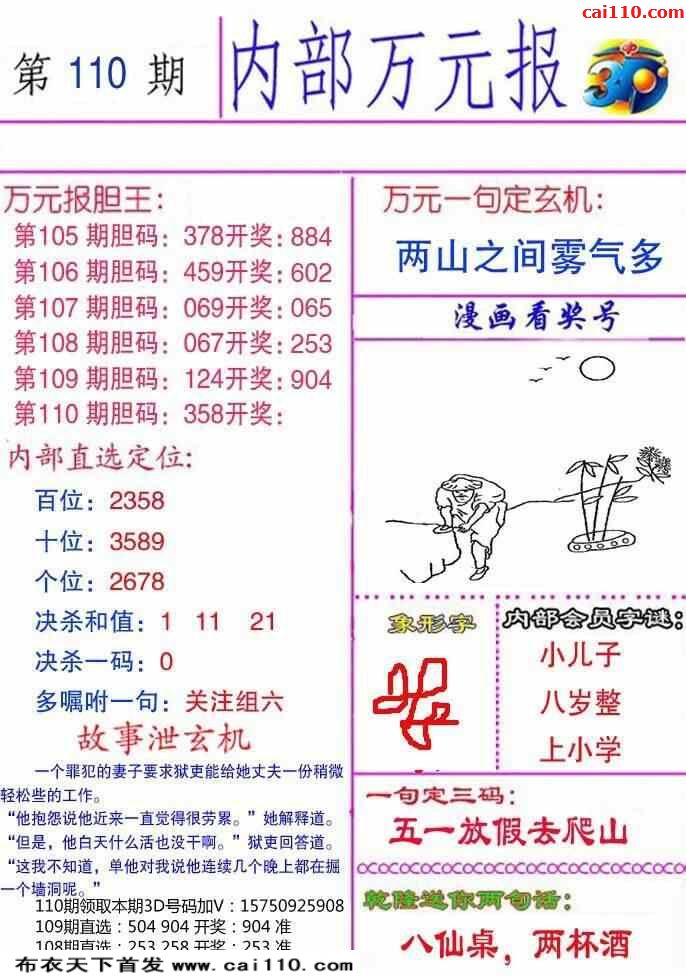 cai110.com
第 110 期
内部万元报
3D
万元报胆王：
第105 期胆码：378开奖：884
第106 期胆码：459开奖：602
第107 期胆码：069开奖：065
第108 期胆码：067开奖：253
第109 期胆码：124开奖：904
第110 期胆码：358开奖：
内部直选定位：
百位：2358
十位：3589
个位：2678
决杀和值：1 11 21
决杀一码：0
多嘱咐一句：关注组六
故事泄玄机
一个罪犯的妻子要求狱吏能给她丈夫一份稍微
轻松些的工作。
“他抱怨说他近来一直觉得很劳累。”她解释道。
“但是，他白天什么活也没干啊。”狱吏回答道。
“这我不知道，单他对我说他连续几个晚上都在掘
一个墙洞呢。”
110期领取本期3D号码加V：15750925908
109期直选：504 904 开奖：904 准
108期直选：253 258 开奖：253 准
布衣天下首发 www.cai110.com
万元一句定玄机：
两山之间雾气多
漫画看奖号
象形字
内部会员字谜：
小儿子
八岁整
上小学
一句定三码：
五一放假去爬山
乾隆送你两句话：
八仙桌，两杯酒